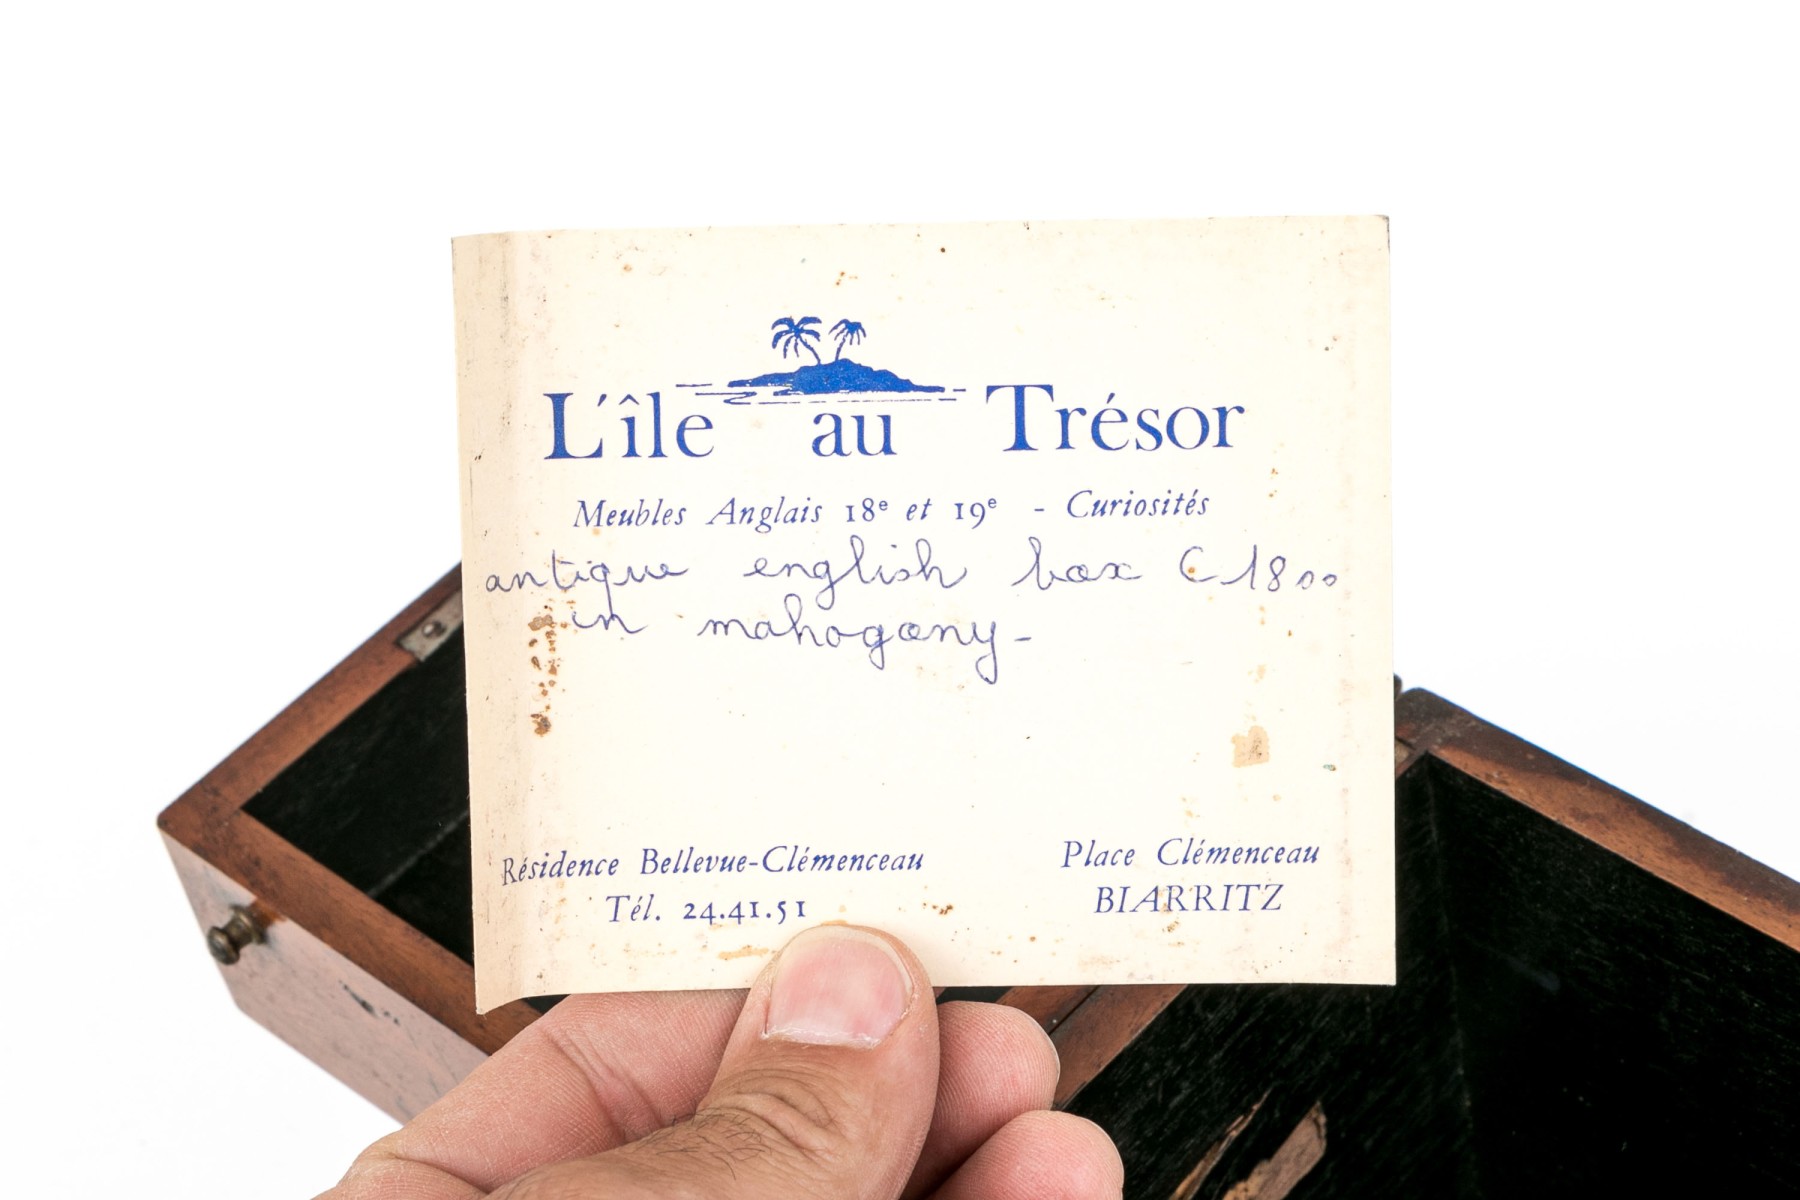 L'île au Trésor
Meubles Anglais 18e et 19e - Curiosités
antique english box C 1800
in mahogany-
Résidence Bellevue-Clémenceau
Tél. 24.41.51
Place Clémenceau
BIARRITZ